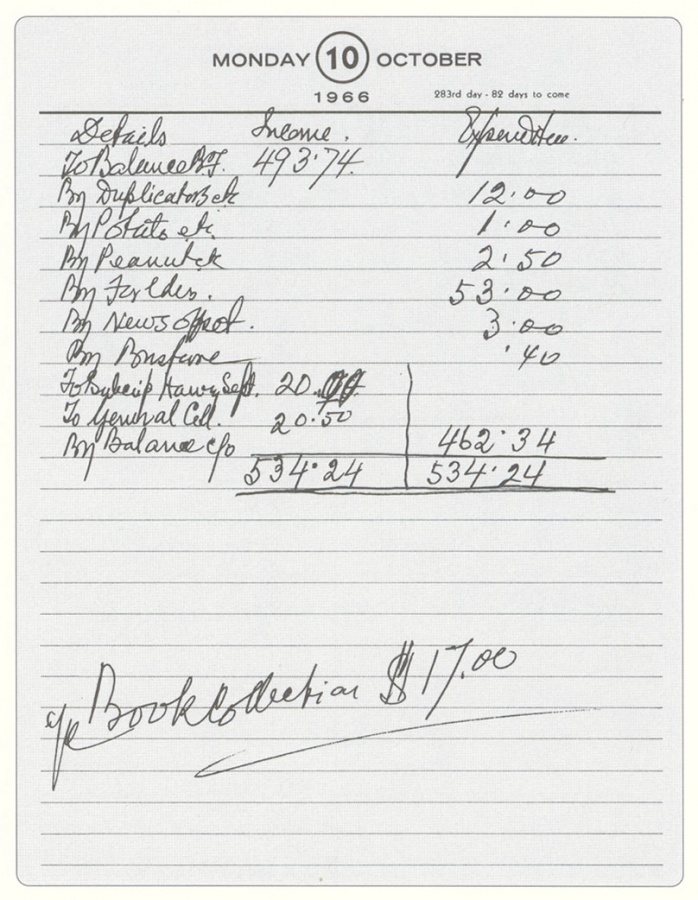 MONDAY 10 OCTOBER
1966 283rd day - 82 days to come
Details Income. Expenditure.
To Balance B/F. 493.74
By Duplicator 12.00
By Potato etc. 1.00
By Peanut 2.50
By 53.00
By News 3.00
By .40
To Sept. 20.00
To General Coll. 20.50
By Balance c/o 462.34
534.24 534.24
Book Collection $17.00